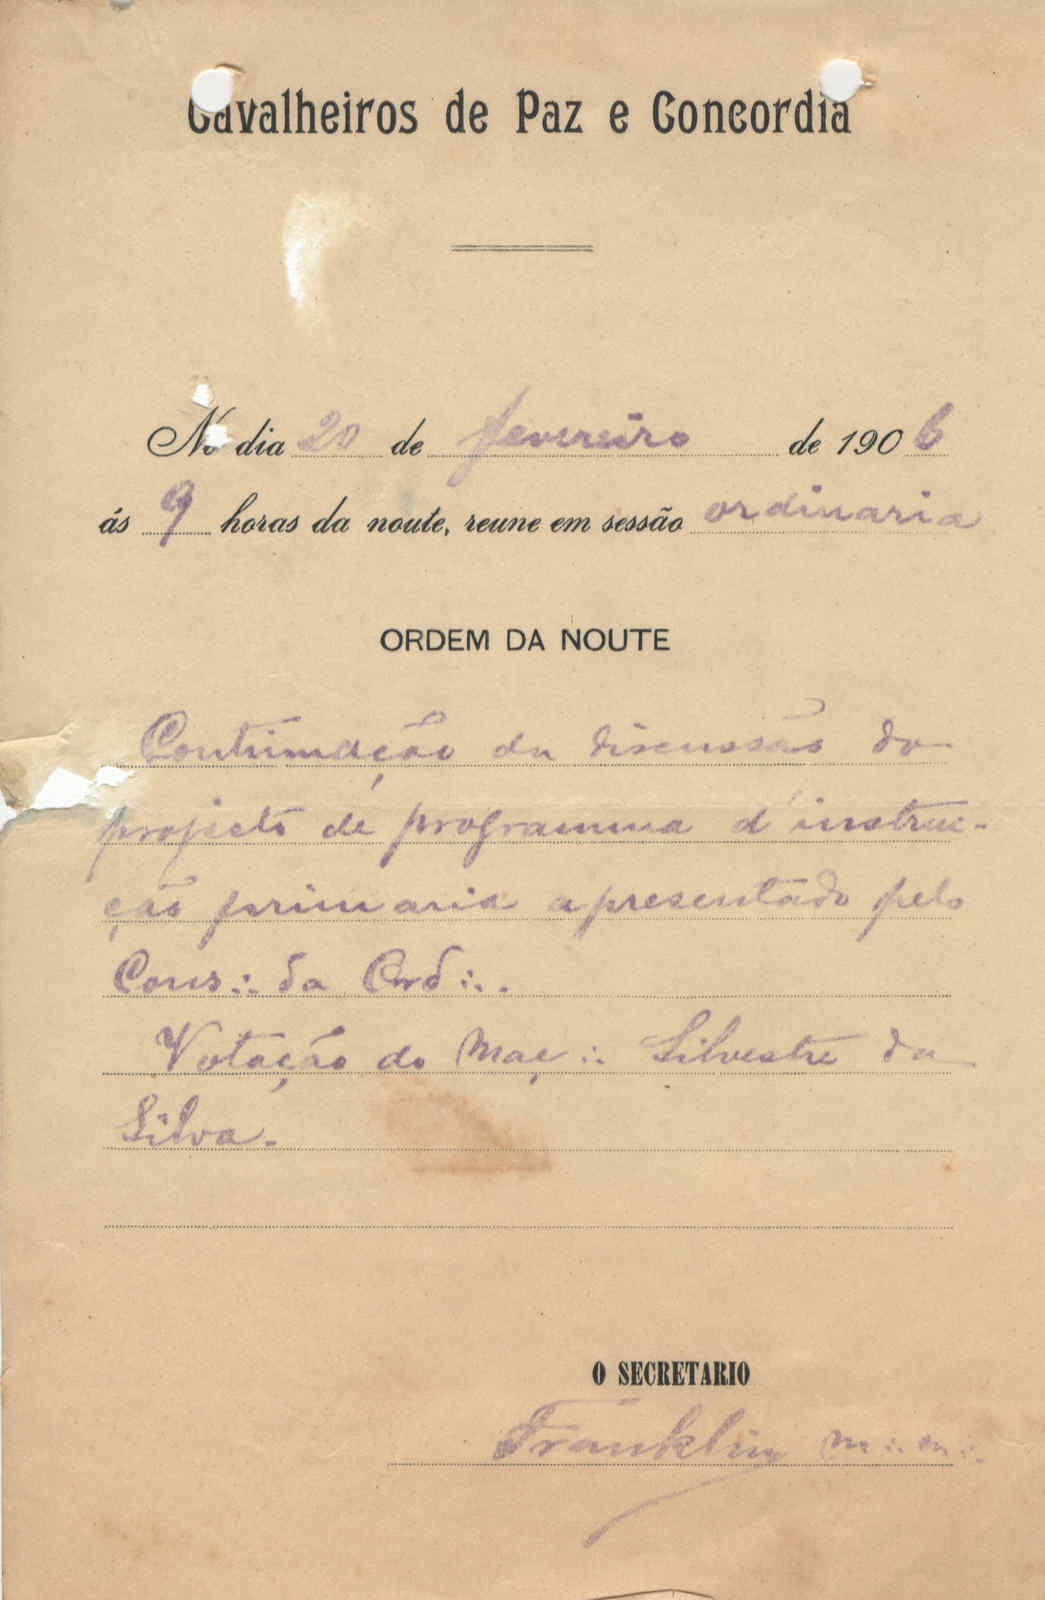 Cavalheiros de Paz e Concordia
No dia 20 de fevereiro de 1906
ás 9 horas da noute, reune em sessão ordinaria
ORDEM DA NOUTE
Continuação da discussão do
projecto de programma d'instruc-
ção primaria apresentado pelo
Cons∴ da Ord∴.
Votação do Maç∴ Silvestre da
Silva.
O SECRETARIO
Franklin M∴ M∴